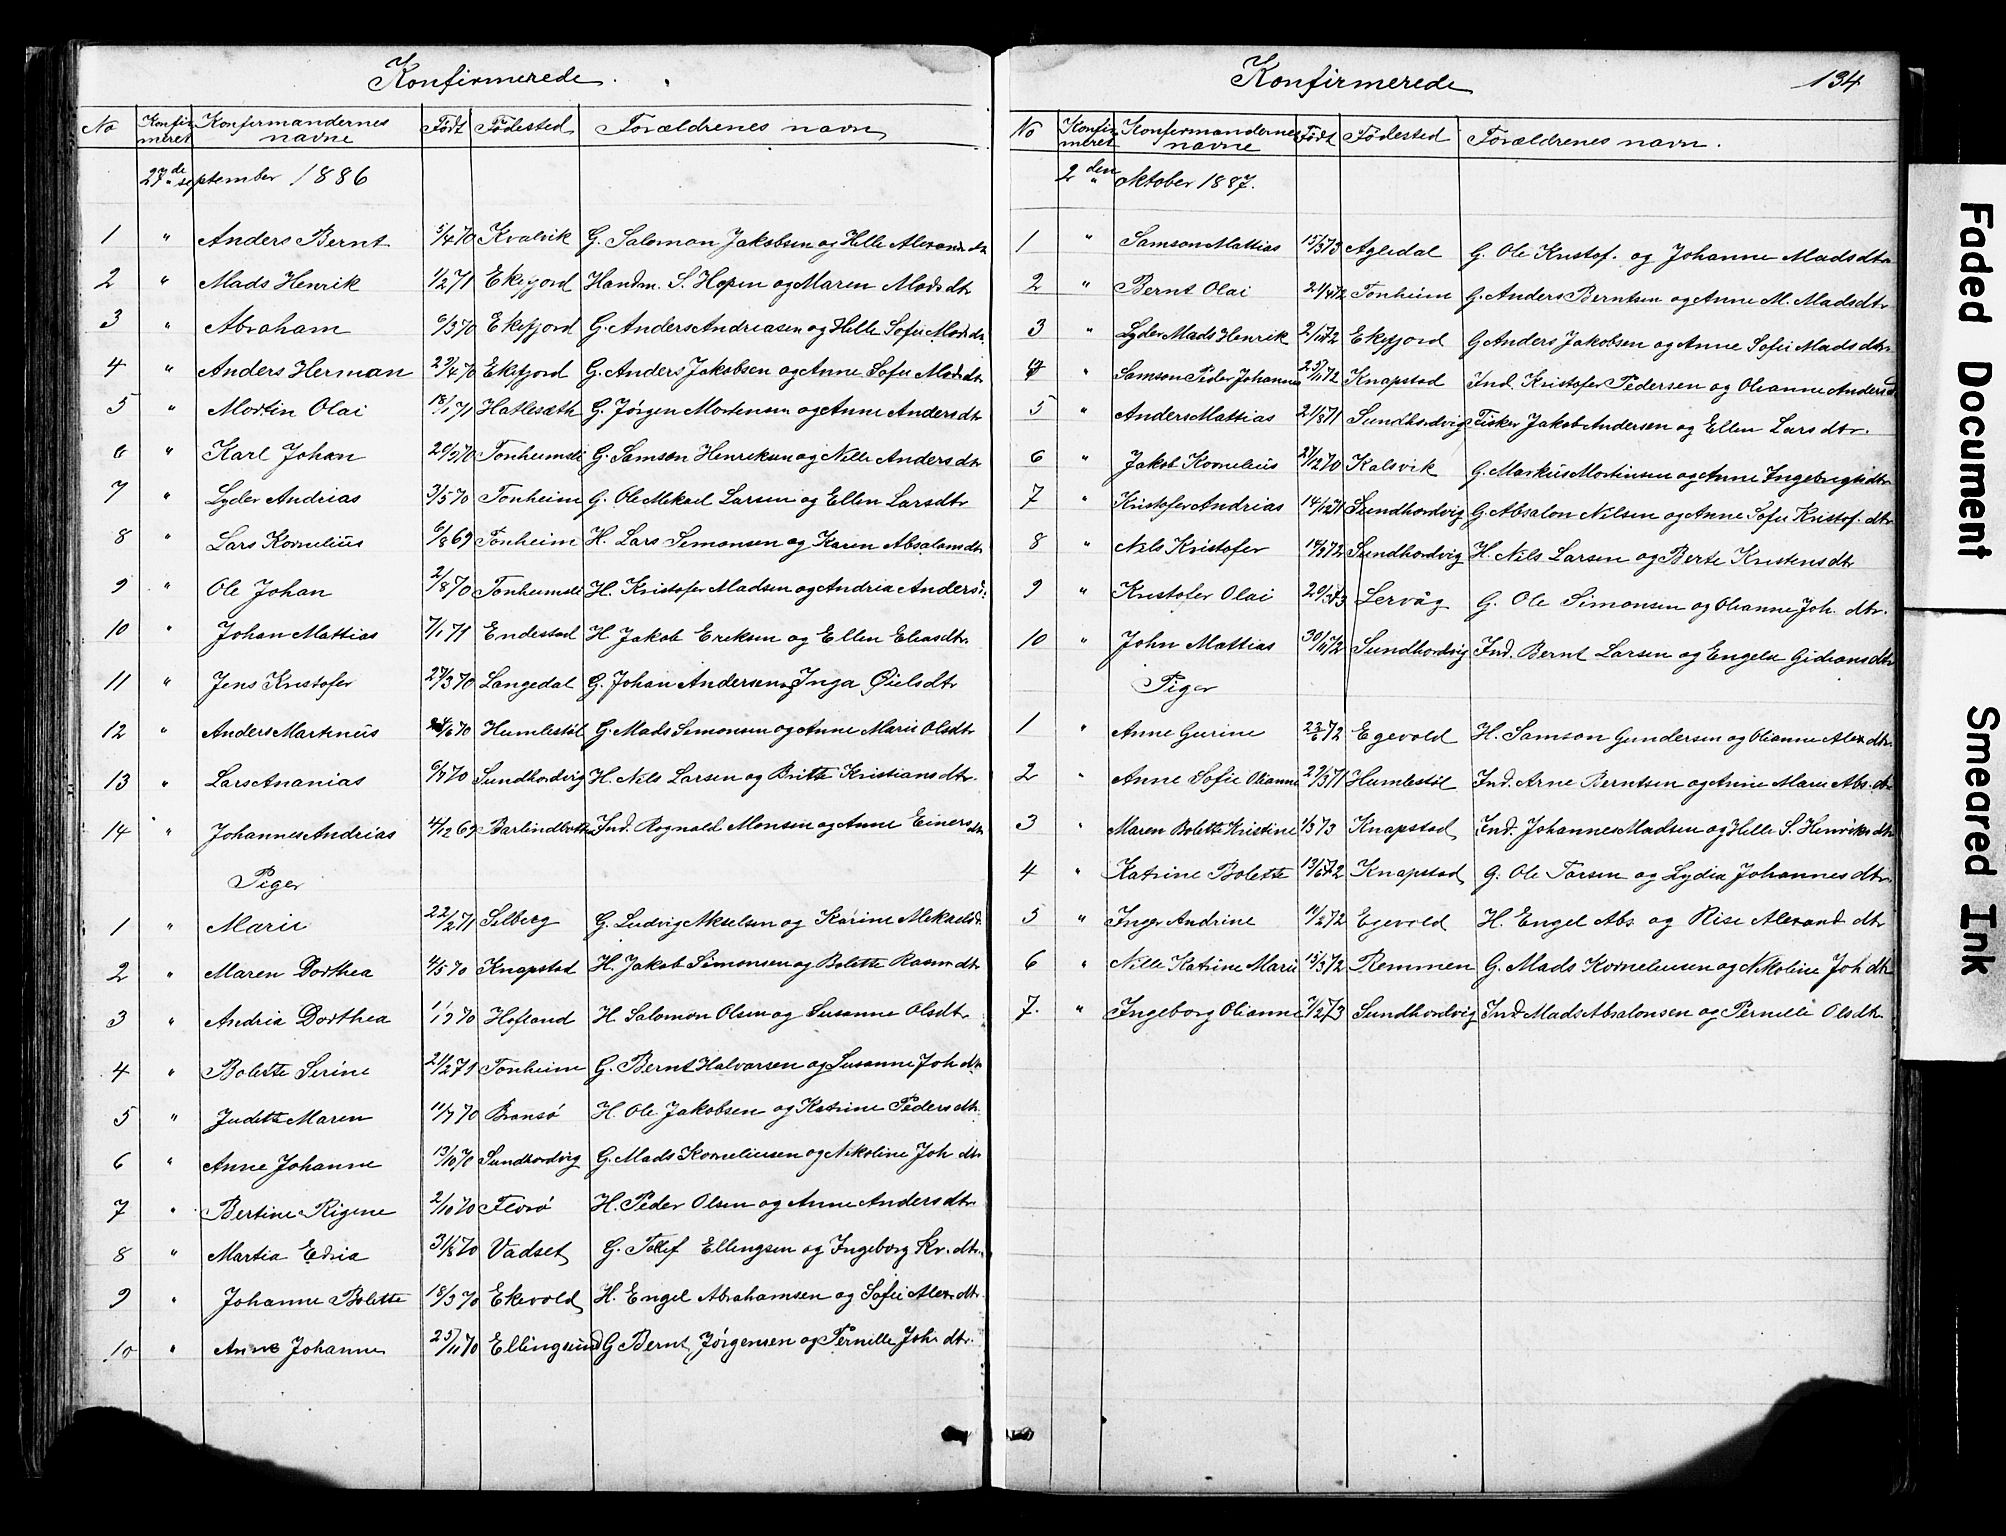 Konfirmerede.
No Konfirmeret Konfirmandernes navne Født Fødested Forældrenes navn
27de september 1886
1 " Anders Bernt 5/4 70 Kvalvik G. Salomon Jakobsen og Hille Alexandr dtr
2 " Mads Henrik 1/2 71 Ekefjord Handm. S. Hopen og Maren Mads dtr
3 " Abraham 6/3 70 Ekefjord G. Anders Andreasen og Hille Sofie Mads dtr.
4 " Anders Herman 23/4 70 Ekefjord G. Anders Jakobsen og Anne Sofie Mads dtr
5 " Mortin Olai 18/1 71 Hatlesæth G. Jørgen Mortensen og Anne Anders dtr
6 " Karl Johan 26/5 70 Tonheimsli G. Samson Henriksen og Nille Anders dtr
7 " Lyder Andrias 3/5 70 Tonheim G. Ole Mikael Larsen og Ellen Larsdtr
8 " Lars Kornelius 6/8 69 Tonheim H. Lars Simonsen og Karen Absalons dtr
9 " Ole Johan 2/8 70 Tonheimsli H. Kristofer Madsen og Andria Anders d.
10 " Johan Mattias 7/1 71 Endestad H Jakob Eriksen og Ellen Eliasdtr
11 " Jens Kristofer 27/3 70 Langedal G. Johan Andersen Inga Øiels dtr
12 " Anders Martinus 24/6 70 Humlestøl G. Mads Simonsen og Anne Marie Olsdtr
13 " Lars Ananias 6/7 70 Sundhordvig H. Nels Larsen og Britte Kristians dtr.
14 " Johannes Andrias 4/12 69 Barlindbotten Ind. Rognald Monsen og Anne Einers dtr
Piger
1 " Marie 22/2 71 Selberg G. Ludvig Akselsen og Karine Mikaelsd.
2 " Maren Dorthea 4/5 70 Knapstad H. Jakob Simonsen og Bolette Rasm dtr
3 " Andria Dorthea 1/9 70 Hofland H. Salomon Olsen og Susanne Olsdtr
4 " Bolette Serine 21/2 71 Tonheim G. Bernt Halvorsen og Susanne Joh dtr
5 " Judith Maren 11/7 70 Bransø H. Ole Jakobsen og Katrine Peders dtr.
6 " Anne Johanne 13/10 70 Sundhordvig G. Mads Korneliusen og Nikoline Joh dtr
7 " Bertine Rigene 2/10 70 Florø H. Peder Olsen og Anne Anders dtr.
8 " Martia Edria 31/8 70 Vadset G. Tollef Ellingsen og Ingeborg Kr. dtr.
9 " Johanne Bolette 18/3 70 Ekevold H. Engel Abrahamsen og Sofie Alex dtr.
10 " Anne Johanne 25/11 70 Ellingsund G Bernt Jørgensen og Pernille Joh. dtr.
Konfirmerede 134
No Konfirmeret Konfirmandernes navne Født Fødested Forældrenes navn.
2den oktober 1887.
1 " Samson Mattias 15/3 73 Agledal G. Ole Kristof. og Johanne Madsdtr
2 " Bernt Olai 21/4 72 Tonheim G. Anders Berntsen og Anne M. Madsdtr
3 " Lyder Mads Henrik 2/10 72 Ekefjord G Anders Jakobsen og Anne Sofie Mads dtr
4 " Samson Peder Johannes 25/11 72 Knapstad Ind. Kristofer Pedersen og Olianne Anders d
5 " Anders Mattias 21/8 71 Sundhordvig Fisker Jakob Andersen og Ellen Lars dtr.
6 " Jakob Kornelius 27/2 70 Kalsvik G. Markus Mortinsen og Anne Ingebrigtsdtr
7 " Kristofer Andrias 14/12 71 Sundhordvig G. Absalon Nilsen og Anne Sofie Kristof. dtr
8 " Nils Kristofer 14/9 72 Sundhordvig H. Nils Larsen og Berte Kristens dtr
9 " Kristofer Olai Lervåg G. Ole Simonsen og Olianne Joh. dtr.
10 " John Mattias 30/11 72 Sundhordvig Ind. Bernt Larsen og Engelse Gidions dtr
Piger
1 " Anne Gurine 23/6 72 Egevold H. Samson Gundersen og Olianne Alex dtr.
2 " Anne Sofie Olianne 29/3 71 Humlestøl Ind. Arne Berntsen og Anne Marie Abs. dtr
3 " Maren Bolette Kristine 1/3 73 Knapstad Ind. Johannes Madsen og Hille S. Henriks dtr
4 " Katrine Bolette 19/6 72 Knapstad G. Ole Torsen og Lydia Johannes dtr.
5 " Inger Andrine 11/2 72 Egevold H. Engel Abr. og Rise Alexand dtr
6 " Nille Katrine Marie 15/3 72 Remmen G. Mads Korneliusen og Nikoline Joh dtr
7. " Ingeborg Olianne 7/2 73 Sundhordvig Ind. Mads Absalonsen og Pernille Olsdtr.
Faded Document
Smeared Ink